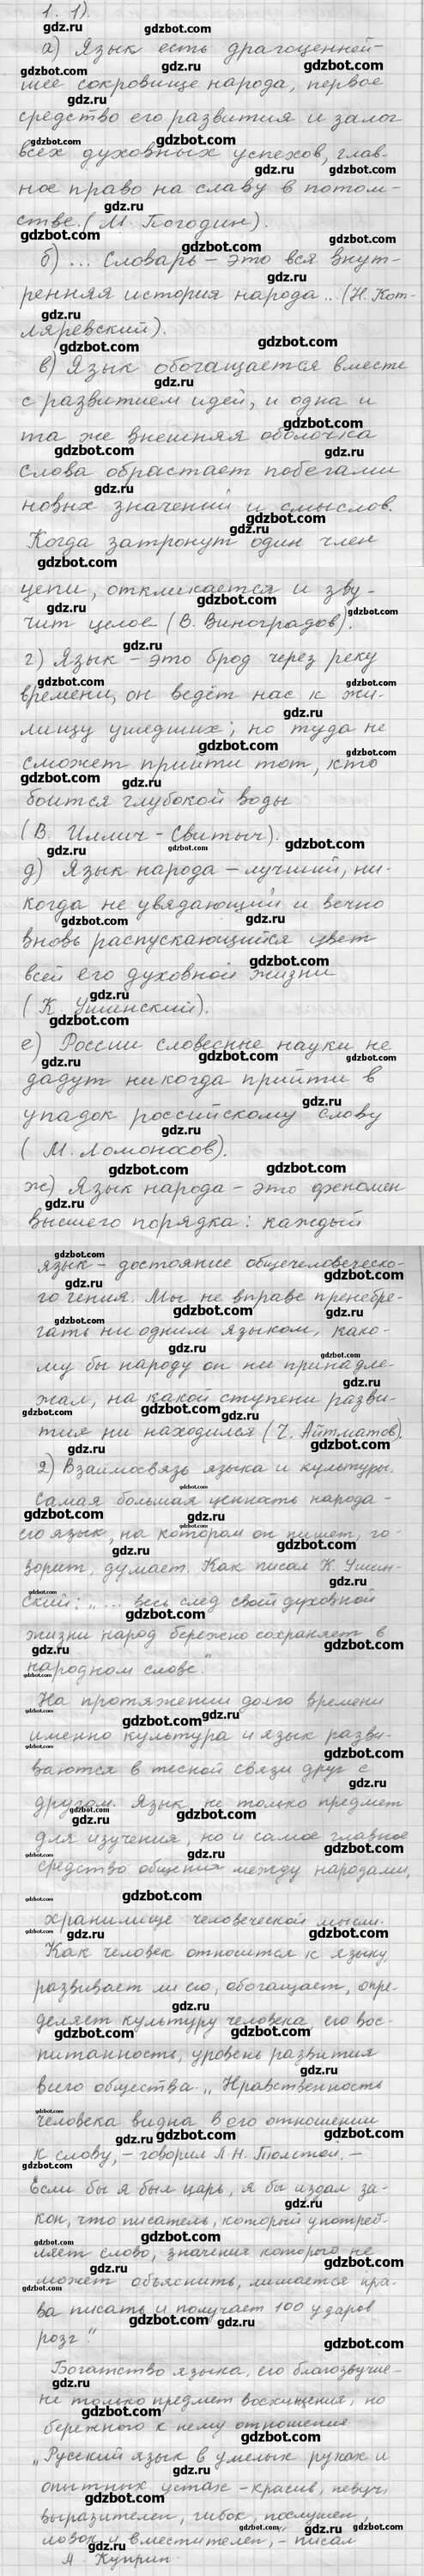 1. 1).
а) Язык есть драгоценней-
шее сокровище народа, первое
средство его развития и залог
всех духовных успехов, глав-
ное право на славу в потом-
стве. (М. Погодин).
б) ... Словарь – это вся внут-
ренняя история народа .. (Н. Кот-
ляревский).
в) Язык обогащается вместе
с развитием идей, и одна и
та же внешняя оболочка
слова обрастает побегами
новых значений и смыслов.
Когда затронут один член
цепи, откликается и зву-
чит целое (В. Виноградов).
г) Язык – это брод через реку
времени, он ведёт нас к жи-
лищу ушедших; но туда не
сможет прийти тот, кто
боится глубокой воды
(В. Иллич-Свитыч).
д) Язык народа – лучший, ни-
когда не увядающий и вечно
вновь распускающийся цвет
всей его духовной жизни
(К. Ушинский).
е) России словесные науки не
дадут никогда прийти в
упадок российскому слову
(М. Ломоносов).
ж) Язык народа – это феномен
высшего порядка: каждый
язык – достояние общечеловеческо-
го гения. Мы не вправе пренебре-
гать ни одним языком, како-
му бы народу он ни принадле-
жал, на какой ступени разви-
тия ни находился (Ч. Айтматов).
2) Взаимосвязь языка и культуры.
Самая большая ценность народа –
его язык, на котором он пишет, го-
ворит, думает. Как писал К. Ушин-
ский: „... весь след своей духовной
жизни народ бережно сохраняет в
народном слове."
На протяжении долго времени
именно культура и язык разви-
ваются в тесной связи друг с
другом. Язык не только предмет
для изучения, но и самое главное
средство общения между народами,
хранилище человеческой мысли.
Как человек относится к языку,
развивает ли его, обогащает, опре-
деляет культуру человека, его вос-
питанность, уровень развития
всего общества. „Нравственность
человека видна в его отношении
к слову, – говорил Л. Н. Толстой. –
Если бы я был царь, я бы издал за-
кон, что писатель, который употреб-
ляет слово, значения которого не
может объяснить, лишается пра-
ва писать и получает 100 ударов
розг".
Богатство языка, его благозвучие –
не только предмет восхищения, но
бережного к нему отношения
„Русский язык в умелых руках и
опытных устах – красив, певуч,
выразителен, гибок, послушен,
ловок и вместителен, – писал
А. Куприн.